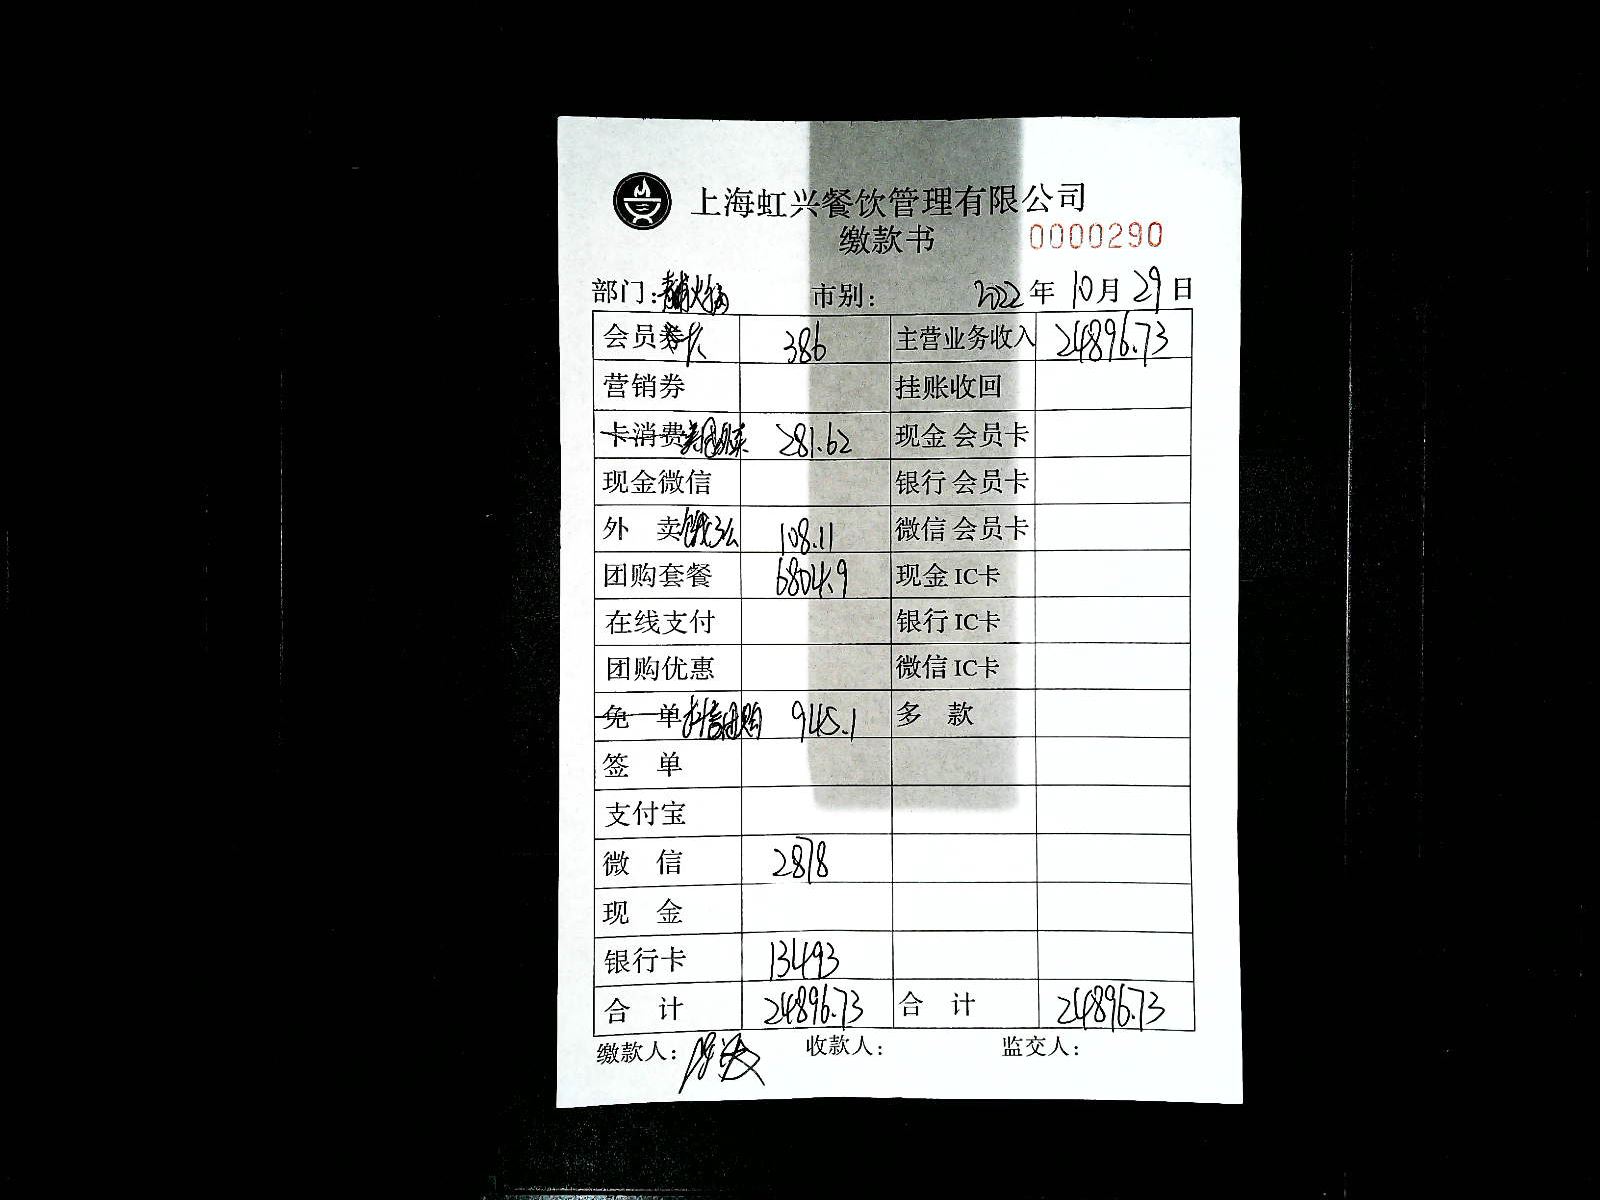 上海虹兴餐饮管理有限公司
缴款书 0000290
部门: 火锅 市别: 2022年10月29日
会员券 386 主营业务收入 24896.73
营销券 挂账收回
卡消费 美团外卖 281.62 现金 会员卡
现金微信 银行 会员卡
外 卖 饿了么 108.11 微信 会员卡
团购套餐 6804.9 现金 IC卡
在线支付 银行 IC卡
团购优惠 微信 IC卡
免 单 抖音团购 945.1 多 款
签 单
支付宝
微 信 2878
现 金
银行卡 13493
合 计 24896.73 合 计 24896.73
缴款人: 收款人: 监交人: